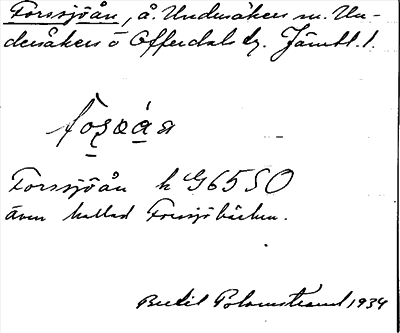 Forssjöån, å. Undersåkers sn. Un-
dersåkers o Offerdals tg. Jämtl. l.
Forssjöån h G6550
även kallad Forssjöbäcken.
Bertil 1934